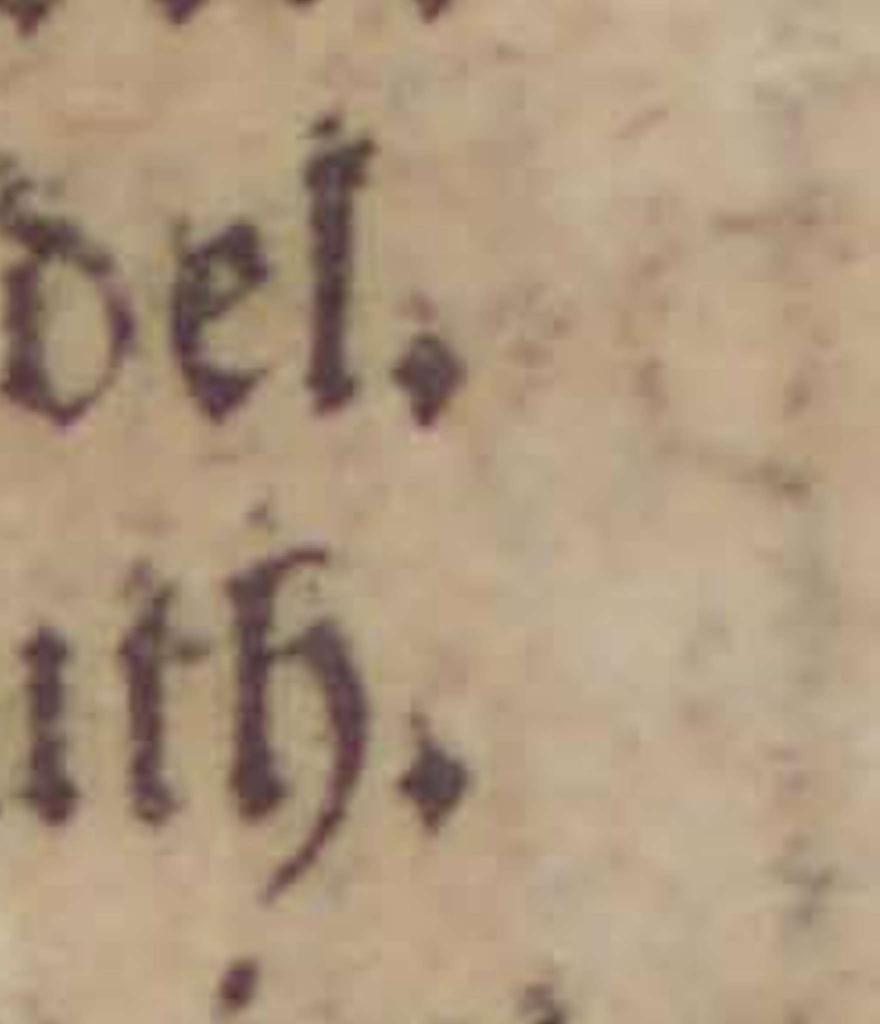 del.
ith.